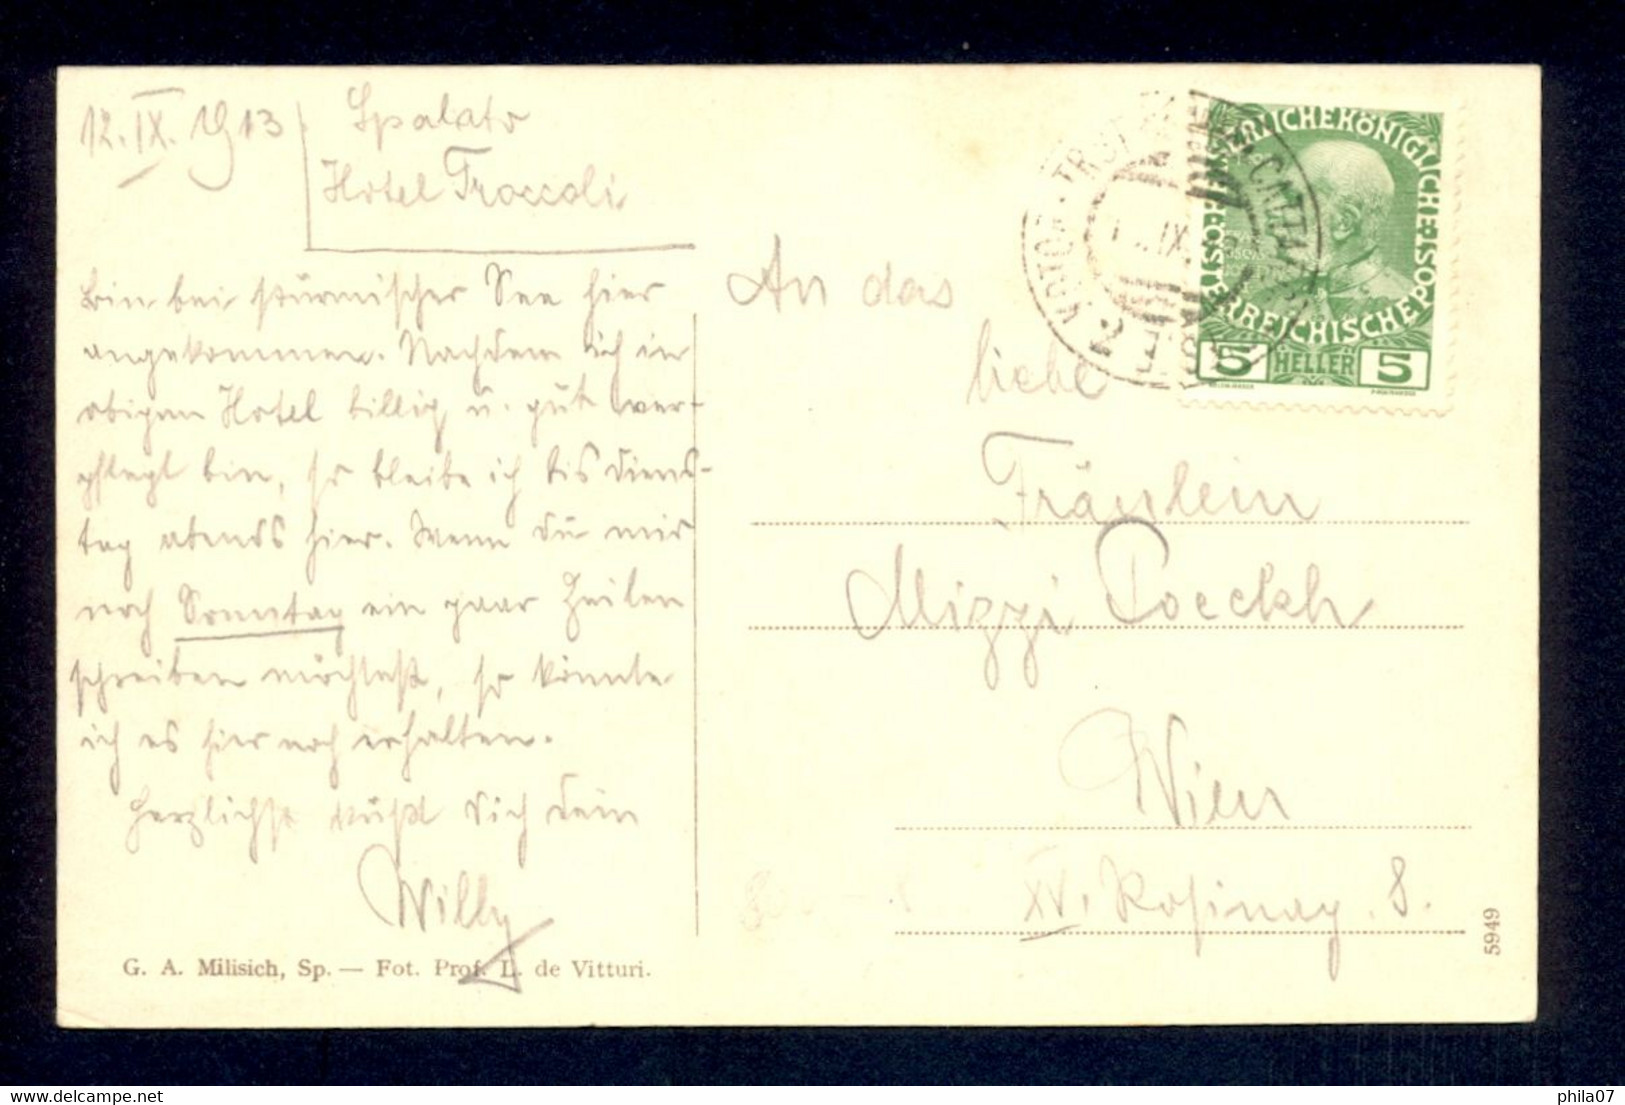 12. IX. 1913
Spalato
Hotel Troccoli
Bin bei stürmischer See hier
angekommen. Nachdem ich im
obigen Hotel billig u. gut ver-
pflegt bin, so bleibe ich bis Diens-
tag abends hier. Wenn Du mir
noch Sonntag ein paar Zeilen
schreiben möchtest, so könnte
ich es hier noch erhalten.
Herzlichst küßt Dich Dein
Willy
G. A. Milisich, Sp. — Fot. Prof. L. de Vitturi.
An das
liebe
Fräulein
Mizzi Poeckh
Wien
XV. Rosinag. 8.
5949
KAISERLICHE KÖNIGLICHE
ÖSTERREICHISCHE POST
5 HELLER 5
phila07